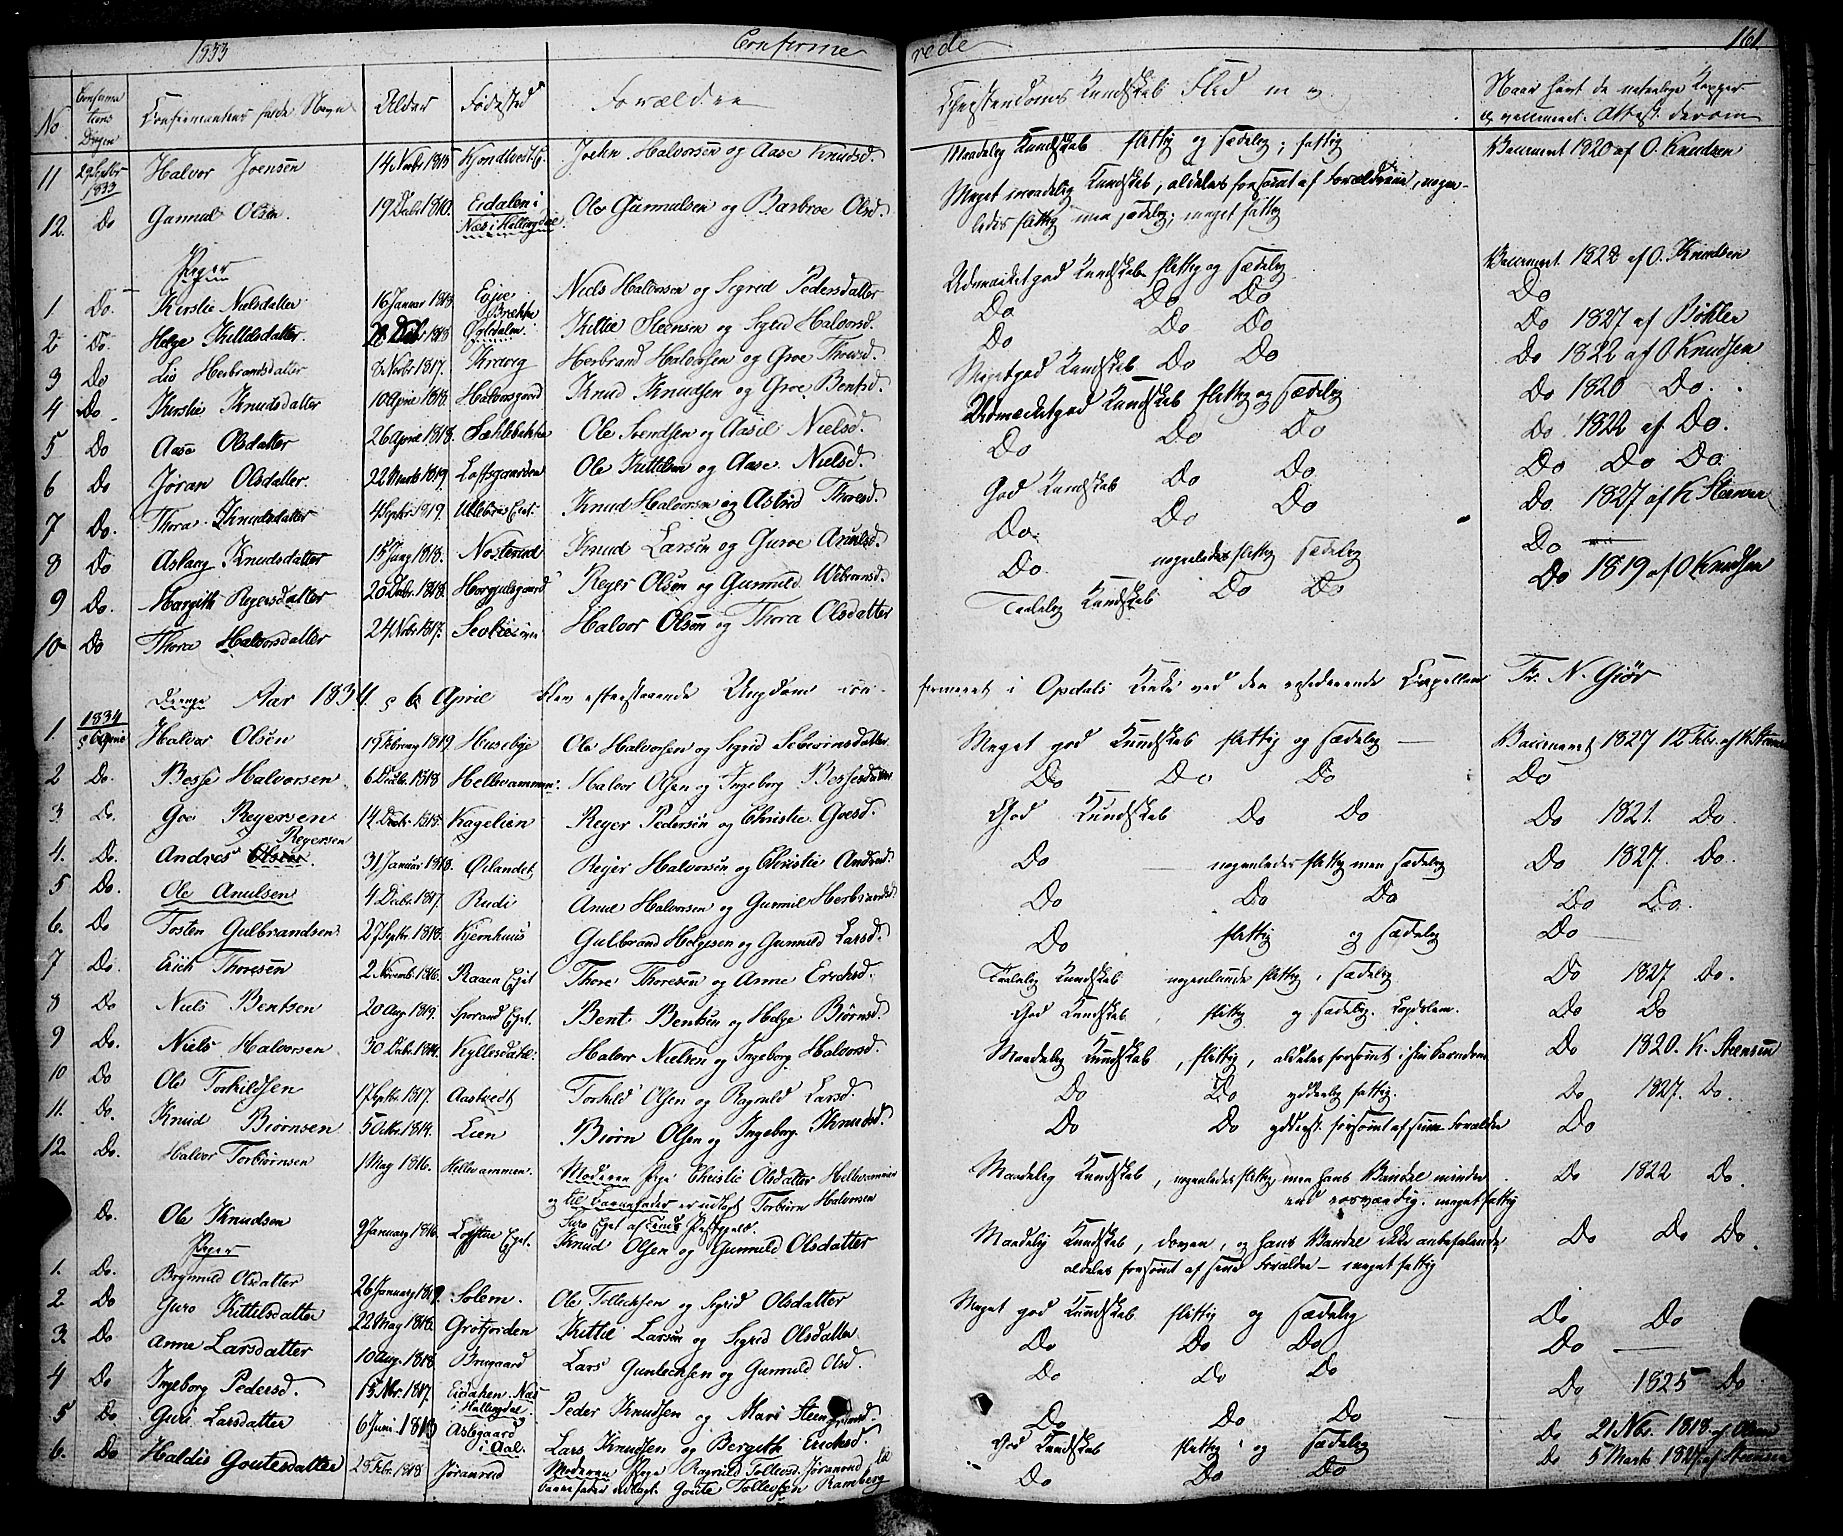 1833 Confirmerede 161
No Confirmations Dagen Confirmanternes fulde Navn Alder Fødested Forældre Christendoms Kundskab Flid m. v. Naar havt de naturlige Kopper og vaccineret. Attest derom
11 29 Septbr 1833 Halvor Joensen 14 Novbr 1815 Joen Halvorsen og Aase Knudsd. Maadelig Kundskab flittig og sædelig; fattig Vaccineret 1820 af O. Knudsen
12. Do Gunnul Olsen 19 Decbr 1810. Eidalen i Næs i Hallingdal. Ole Gunnulsen og Barbroe Olsd. Meget maadelig Kundskab, aldeles forsømt af Forældrene, nogenledes flittig men sædelig; meget fattig
Piger
1 Do. Kirstie Nielsdatter 16 Januar 1819 Espe Niels Halvorsen og Sigrid Pedersdatter Udmærket god Kundskab flittig og sædelig Vaccineret 1822 af O. Knudsen
2 Do. Helge Kittilsdatter 1818 Opledalen Kittil Steensen og Sigrid Halvorsd. Do Do Do Do
3 Do Liv Herbrandsdatter 8 Novbr 1817. Kravig Herbrand Halvorsen og Groe Thorsd. Do Do Do Do 1827 af Bøhler
4 Do Kirstie Knudsdatter 10 April 1818. Halvorsgaard Knud Knudsen og Groe Bentsd. Meget god Kundskab Do Do Do 1822 af O Knudsen
5 Do Aase Olsdatter 26 April 1818. Sæhlebakke Ole Svendsen og Aasil Nielsd. Udmærket god Kundskab flittig og sædelig Do 1820 Do.
6 Do Jøran Olsdatter. 22 Marts 1819. Loftsgaarden Ole Kittilsen og Aase Nielsd. Do Do Do Do 1822 af Do.
7 Do. Thora Knudsdatter 4 Septbr 1819. Ullebrie Eiet. Knud Halvorsen og Astrid Thoresd. God Kundskab Do Do Do Do Do
8 Do Aslaug Knudsdatter 15 Juny 1818. Nosterud Knud Larsen og Guroe Arnulsd. Do. Do Do Do 1827 af K Steensen
9 Do. Margith Reyersdatter 20 Decbr 1818. Horgulsgaard Reyer Olsen og Gunnild Wibransd. Do. nogenledes flittig sædelig Do
10 Do Thora Halvorsdatter 24 Novbr 1817. Halvor Olsen og Thora Olsdatter Taalelig Kundskab Do Do Do 1819 af O Knudsen
Drenge Aar 1834. § 6 April blev efterstaaende Ungdom confirmeret i Opdals Kirke ved den residerende Capellan Fr. N. Giør
1. 1834 § 6 April Halvor Olsen 19 February 1819 Husebye Ole Halvorsen og Sigrid Sebiørnsdatter Meget god Kundskab flittig og sædelig Vaccineret 1827 12 Febr. af K Steensen
2 Do. Bosse Halvorsen 6 Decbr. 1818 Hellevammen. Halvor Olsen og Ingeborg Bossesdatter Do Do Do Do
3 Do. Goe Reyersen 14 Decbr. 1818. Kagelien Reyer Pedersen og Christie Goesd. God Kundskab Do Do Do 1821. Do
4. Do. Andres Olsen Reyersen 31 Januar 1818. Ørlandet Reyer Halvorsen og Christie Andresd. Do nogenledes flittig men sædelig Do 1827. Do.
5 Do. Ole Anulsen 4 Decbr. 1817. Rudi Anul Halvorsen og Gunnil Herbrandsd. Do Do Do Do Do.
6. Do Tosten Gulbrandsen. 27 Septbr. 1818. Kjernhuus Gulbrand Helgesen og Gunnild Larsd. Do flittig og sædelig Do
7 Do. Erich Thoresen 2 Novemb. 1816. Raaen Eiet Thore Thoresen og Anne Erichsd. Taalelig Kundskab nogenlunde flittig, sædelig Do 1827 Do.
8 Do Niels Bentsen 20 Aug. 1819. Sporand Eiet. Bent Bentsen og Helge Biørnsd. God Kundskab, flittig og sædelig. Lægdslem. Do Do
9 Do. Niels Halvorsen 30 Decbr. 1814. Kyllesdahl. Halvor Nielsen og Ingeborg Halvorsd. Maadelig Kundskab, flittig, aldeles forsømt i sin Barndom Do 1820. K. Steensen
10 Do Ole Torkildsen 17 Septbr. 1817. Aastvedt Torkild Olsen og Ragnild Larsd. Do Do yderlig fattig. Do 1827. Do.
11. Do. Knud Biørnsen 5 Octbr. 1819. Lien Biørn Olsen og Ingeborg Knudsd. Do Do forsømt af sine Forældre Do
12. Do. Halvor Torbiørnsen 1 May 1816. Hellevammen. Moderen Pige Christie Olsdatter Hellevammen og til Barnefader er udlagt Torbiørn Halvorsen Maadelig Kundskab, nogenledes flittig men hans Vandel mindre end rosværdig. meget fattig Do 1822 Do.
Do. Ole Knudsen 9 January 1816. Eiet. Knud Olsen og Gunnild Olsdatter Maadelig Kundskab, doven, og hans Vandel ikke anbefalende aldeles forsømt af sine Forældre — meget fattig Do Do Do
Piger
1. Do. Brynnild Olsdatter 26 January 1819. Solem. Ole Tollechsen og Sigrid Olsdatter Meget god Kundskab flittig og sædelig Do Do
2. Do Guro Kittilsdatter 22 May 1818. Grotfjorden Kittil Larsen og Sigrid Olsdatter Do Do Do Do
3. Do Anne Larsdatter 10 Aug. 1818. Brugaard Lars Gunlechsen og Gunnild Olsd. Do Do Do Do 1825 Do
4 Do Ingeborg Pedersd. 15 Nbr. 1817. Eidahen Næs i Hallingdal. Peder Knudsen og Mari Steengrimsd. Do Do Do Do 21 Nbr. 1818. af Olsen
5 Do. Guri Larsdatter 6 Juni 1818 Aslegaard i Aal. Lars Knudsen og Bergith Erichsd. God Kundskab flittig og sædelig Do 5 Marts 1827. af Steensen
6. Do. Haldis Goutesdatter 2 Febr. 1818 Jøranrud Moderen Pige Ragnild Tollevsd. Jøranrud Barnefader udlagt Goute Tollevsen Ramberg Do Do Do